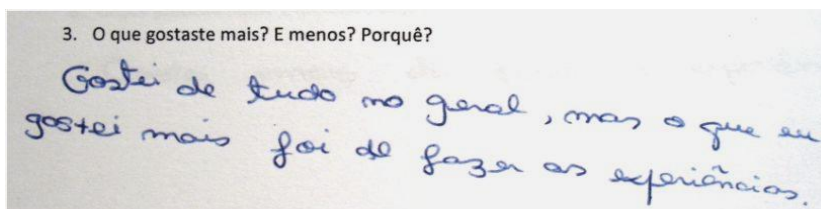 3. O que gostaste mais? E menos? Porquê?
Gostei de tudo no geral, mas o que eu
gostei mais foi de fazer as experiências.